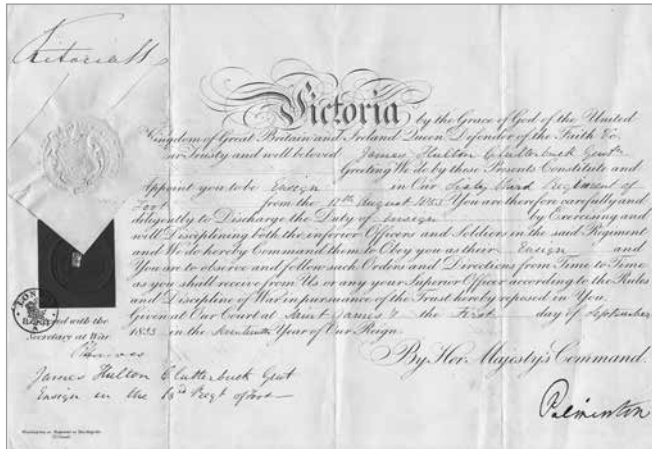 Victoria R
Victoria by the Grace of God of the United
Kingdom of Great Britain and Ireland Queen Defender of the Faith &c
Trusty and well beloved James Hulton Clutterbuck Gent
Greeting We do by these Presents Constitute and
Appoint you to be Ensign in Our Sixty third Regiment of
Foot from the 12th August 1853 You are therefore carefully and
diligently to Discharge the Duty of Ensign by Exercising and
well Disciplining both the inferior Officers and Soldiers in the said Regiment
and We do hereby Command them to Obey you as their Ensign and
You are to observe and follow such Orders and Directions from Time to Time
as you shall receive from Us or any your Superior Officer according to the Rules
and Discipline of War in pursuance of the Trust hereby reposed in You.
Given at Our Court at Saint James's the First day of September
1853 in the Seventeenth Year of Our Reign.
By Her Majesty's Command.
with the
Secretary at War
James Hulton Clutterbuck Gent
Ensign in the 63rd Regt of Foot
Palmerston